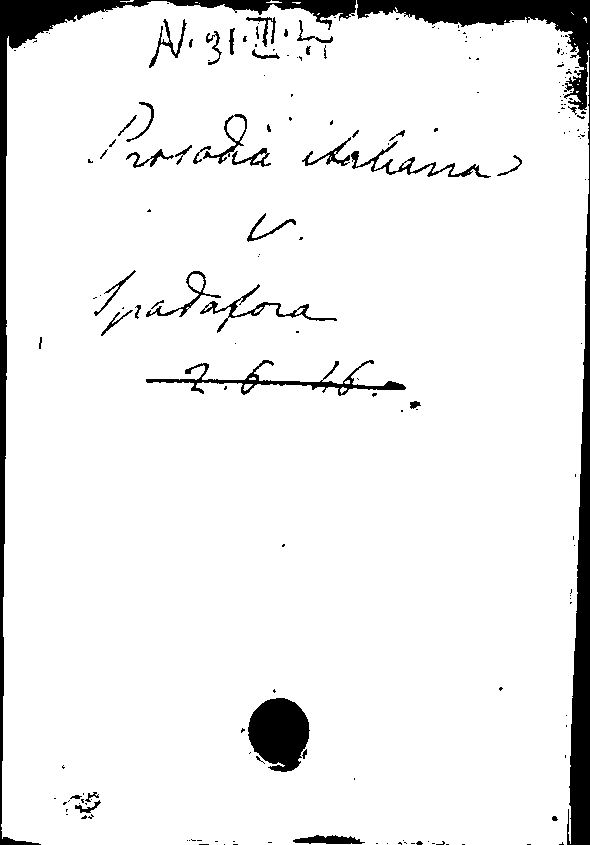 AV. 31. III.
Prosodia italiana
V.
Spadafora
2.6 46.